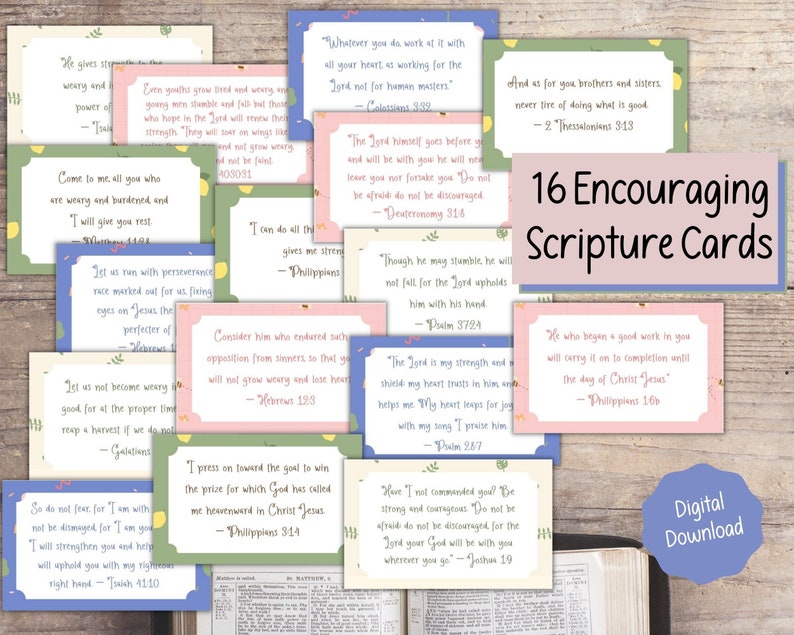 "He gives strength to the
weary and
power of
— "Isai
Even youths grow tired and weary, and
young men stumble and fall; but those
who hope in the Lord will renew their
strength. "They will soar on wings like
and not grow weary,
and not be faint.
40:30:31
"Whatever you do, work at it with
all your heart, as working for the
Lord, not for human masters."
— Colossians 3:32
And as for you, brothers and sisters,
never tire of doing what is good.
— 2 Thessalonians 3:13
"The Lord himself goes before yo
and will be with you he will never
leave you nor forsake you. "Do not
be afraid; do not be discouraged.
— "Deuteronomy 31:8
16 Encouraging
Scripture Cards
Come to me, all you who
are weary and burdened, and
"I will give you rest.
— Matthew 11:28
"I can do all th
gives me streng
— "Philippians
Though he may stumble, he will
not fall, for the Lord upholds
him with his hand.
— "Psalm 37:24
"Let us run with perseverance
race marked out for us, fixing
eyes on "Jesus, the
perfecter of
— "Hebrews 1
Consider him who endured such
opposition from sinners, so that you
will not grow weary and lose heart
— "Hebrews 12:3
"The Lord is my strength and my
shield; my heart trusts in him, and
helps me. "My heart leaps for joy
with my song "I praise him.
— "Psalm 28:7
"He who began a good work in you
will carry it on to completion until
the day of Christ Jesus."
— "Philippians 1:6b
"Let us not become weary i
good, for at the proper time
reap a harvest if we do not
— Galatians
"I press on toward the goal to win
the prize for which God has called
me heavenward in Christ Jesus.
— "Philippians 3:14
"Have "I not commanded you? "Be
strong and courageous. "Do not be
afraid; do not be discouraged, for the
Lord your God will be with you
wherever you go." — Joshua 1:9
So do not fear, for "I am with
not be dismayed, for "I am you
"I will strengthen you and help
will uphold you with my righteous
right hand. — "Isaiah 41:10
Digital
Download
Matthew is called.
ST. MATTHEW, 9.